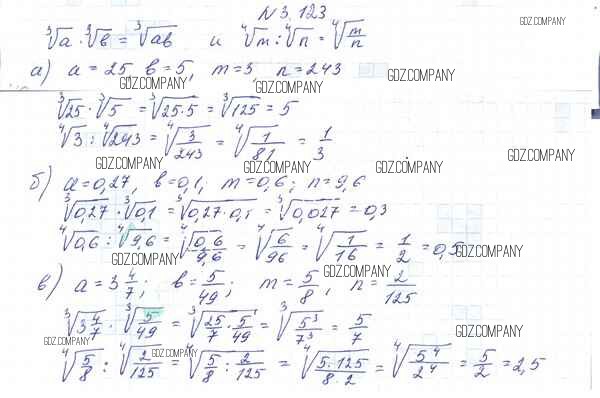 N 3.123
GDZ.COMPANY
∛a · ∛b = ∛ab и ⁴√m : ⁴√n = ⁴√(m/n)
а) a = 25 b = 5, m = 3 n = 243
GDZ.COMPANY
GDZ.COMPANY
GDZ.COMPANY
∛25 · ∛5 = ∛(25·5) = ∛125 = 5
⁴√3 : ⁴√243 = ⁴√(3/243) = ⁴√(1/81) = 1/3
GDZ.COMPANY
GDZ.COMPANY
GDZ.COMPANY
GDZ.COMPANY
б) a = 0,27, b = 0,1, m = 0,6; n = 9,6
∛0,27 · ∛0,1 = ∛(0,27·0,1) = ∛0,027 = 0,3
⁴√0,6 : ⁴√9,6 = ⁴√(0,6/9,6) = ⁴√(6/96) = ⁴√(1/16) = 1/2 = 0,5
GDZ.COMPANY
GDZ.COMPANY
GDZ.COMPANY
в) a = 3 4/7; b = 5/49; m = 5/8, n = 2/125
∛(3 4/7) · ∛(5/49) = ∛(25/7 · 5/49) = ∛(5³/7³) = 5/7
GDZ.COMPANY
GDZ.COMPANY
GDZ.COMPANY
⁴√(5/8) : ⁴√(2/125) = ⁴√(5/8 : 2/125) = ⁴√(5·125/8·2) = ⁴√(5⁴/2⁴) = 5/2 = 2,5